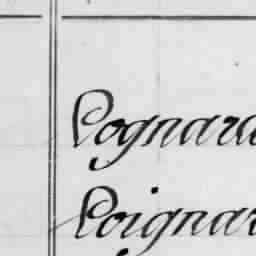 Pognard
Poignar